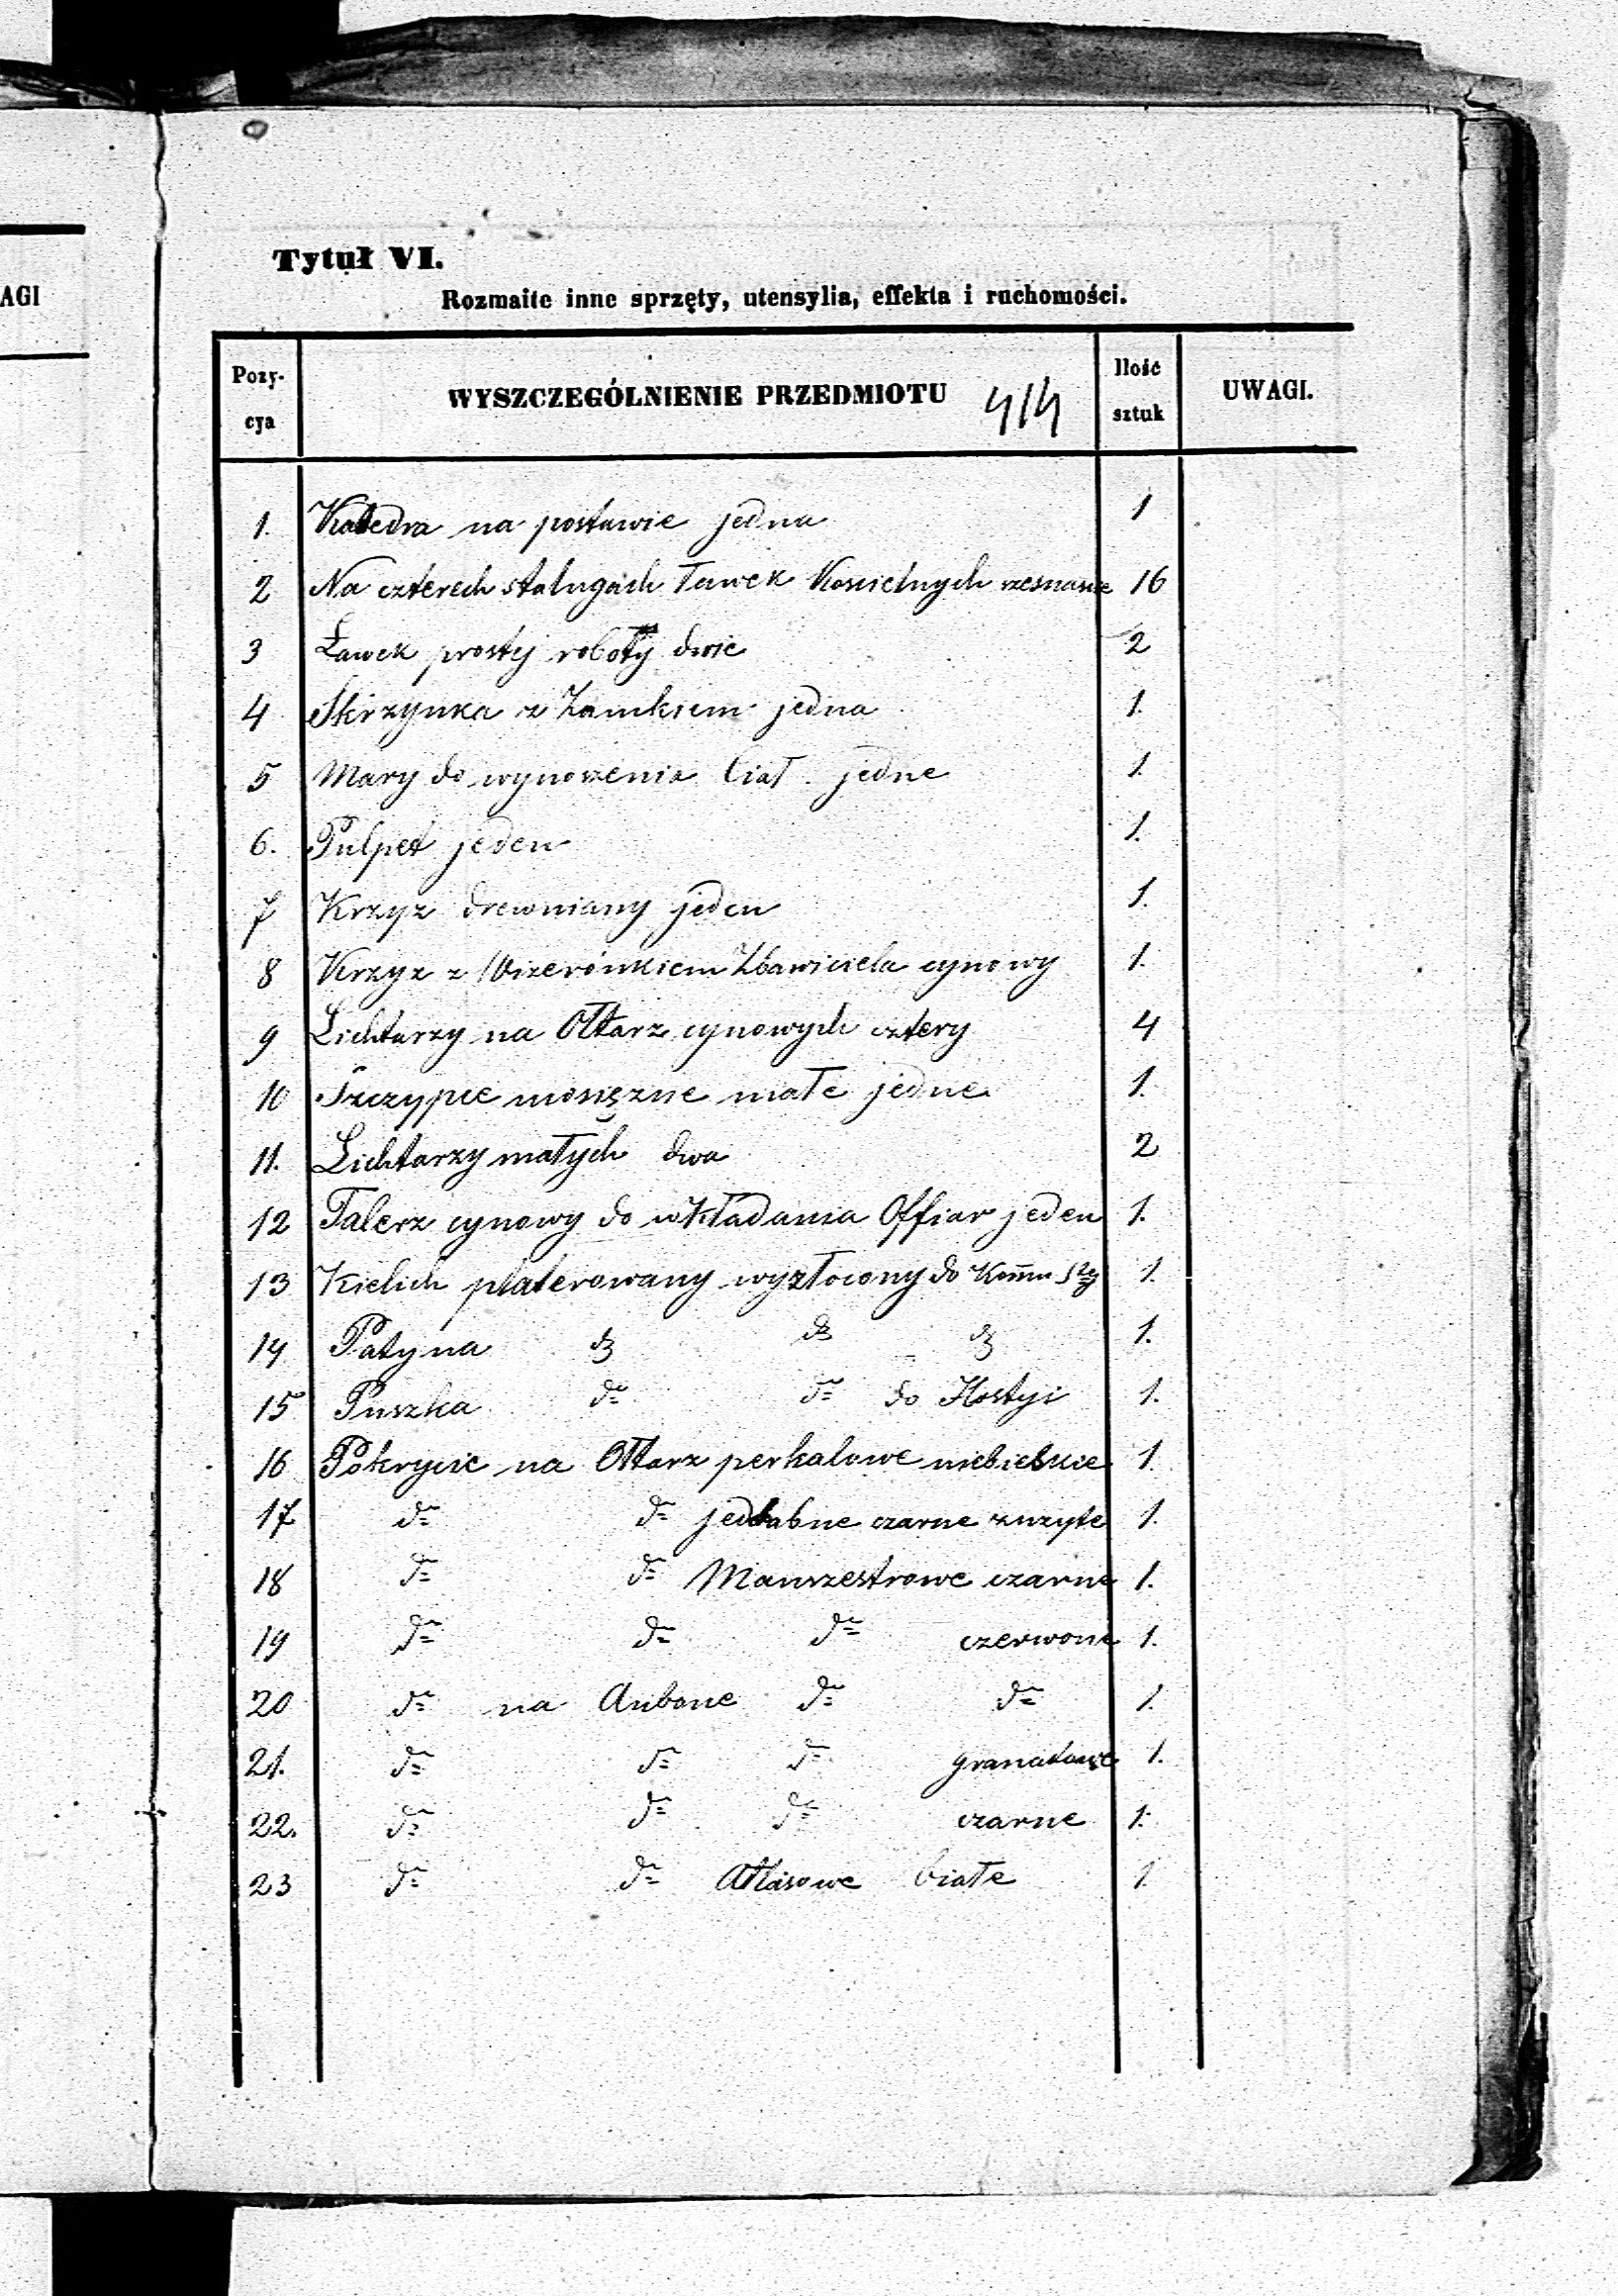 AGI
Tytuł VI.
Rozmaite inne sprzęty, utensylia, effekta i ruchomości.
Pozy-cya WYSZCZEGÓLNIENIE PRZEDMIOTU Ilość sztuk UWAGI.
1. Katedra na postawie jedna 1
2 Na czterech stalugach Ławek Koscielnych szesnascie 16
3 Ławek prostej roboty dwie 2
4 Skrzynka z Zamkiem jedna 1.
5 Mary do wynoszenia Ciał jedne 1.
6. Pulpet jeden 1.
7 Krzyz drewniany jeden 1.
8 Krzyz z Wizerónkiem Zbawiciela cynowy 1.
9 Lichtarzy na Ołtarz cynowych cztery 4
10 Szczypce mosiężne małe jedne 1.
11. Lichtarzy małych dwa 2
12 Talerz cynowy do wkładania Offiar jeden 1.
13 Kielich platerowany wyzłocony do Komm Stej 1.
14 Patyna do do do 1.
15 Puszka do do do Hostyi 1.
16 Pokrycie na Ołtarz perkalowe niebieskie 1.
17 do do jedbabne czarne zuzyte 1.
18 do do Manszestrowe czarne 1.
19 do do do czerwone 1.
20 do na Ambone do do 1.
21. do do do granatowe 1.
22. do do do czarne 1.
23 do do Atlasowe białe 1